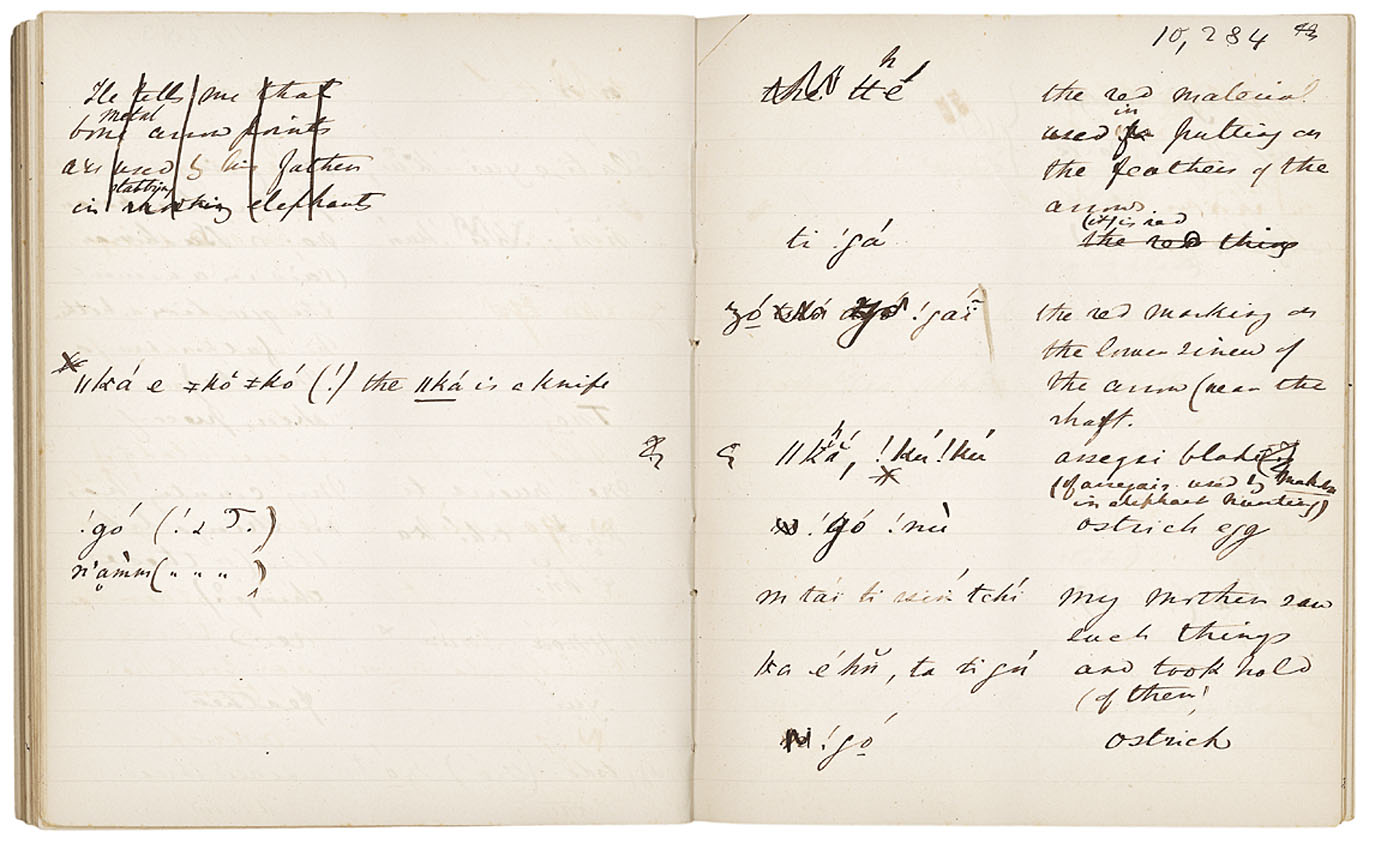 He tells me that
metal
bone arrow points
are used by his father
stabbing
in shooking elephants
ǁká e ǂkó ǂkó (!) the ǁká is a knife
!gó (! & T.)
n'amm („ „ „ )
10,284
the tthé the red material
in
used putting on
the feathers of the
arrow
ti !gá (it) is red
the red thing
zó !gaĩ the red marking on
the lower sinew of
the arrow (near the
shaft.
ǁkhá, !kú!kú assegai blade
(of assegais used by Makoba
in elephant hunting)
!gó !nù ostrich egg
m tái ti sẽ́ tchí my mother saw
such things
ka é hŭ, ta ti gú and took hold
(of them)
!gó ostrich